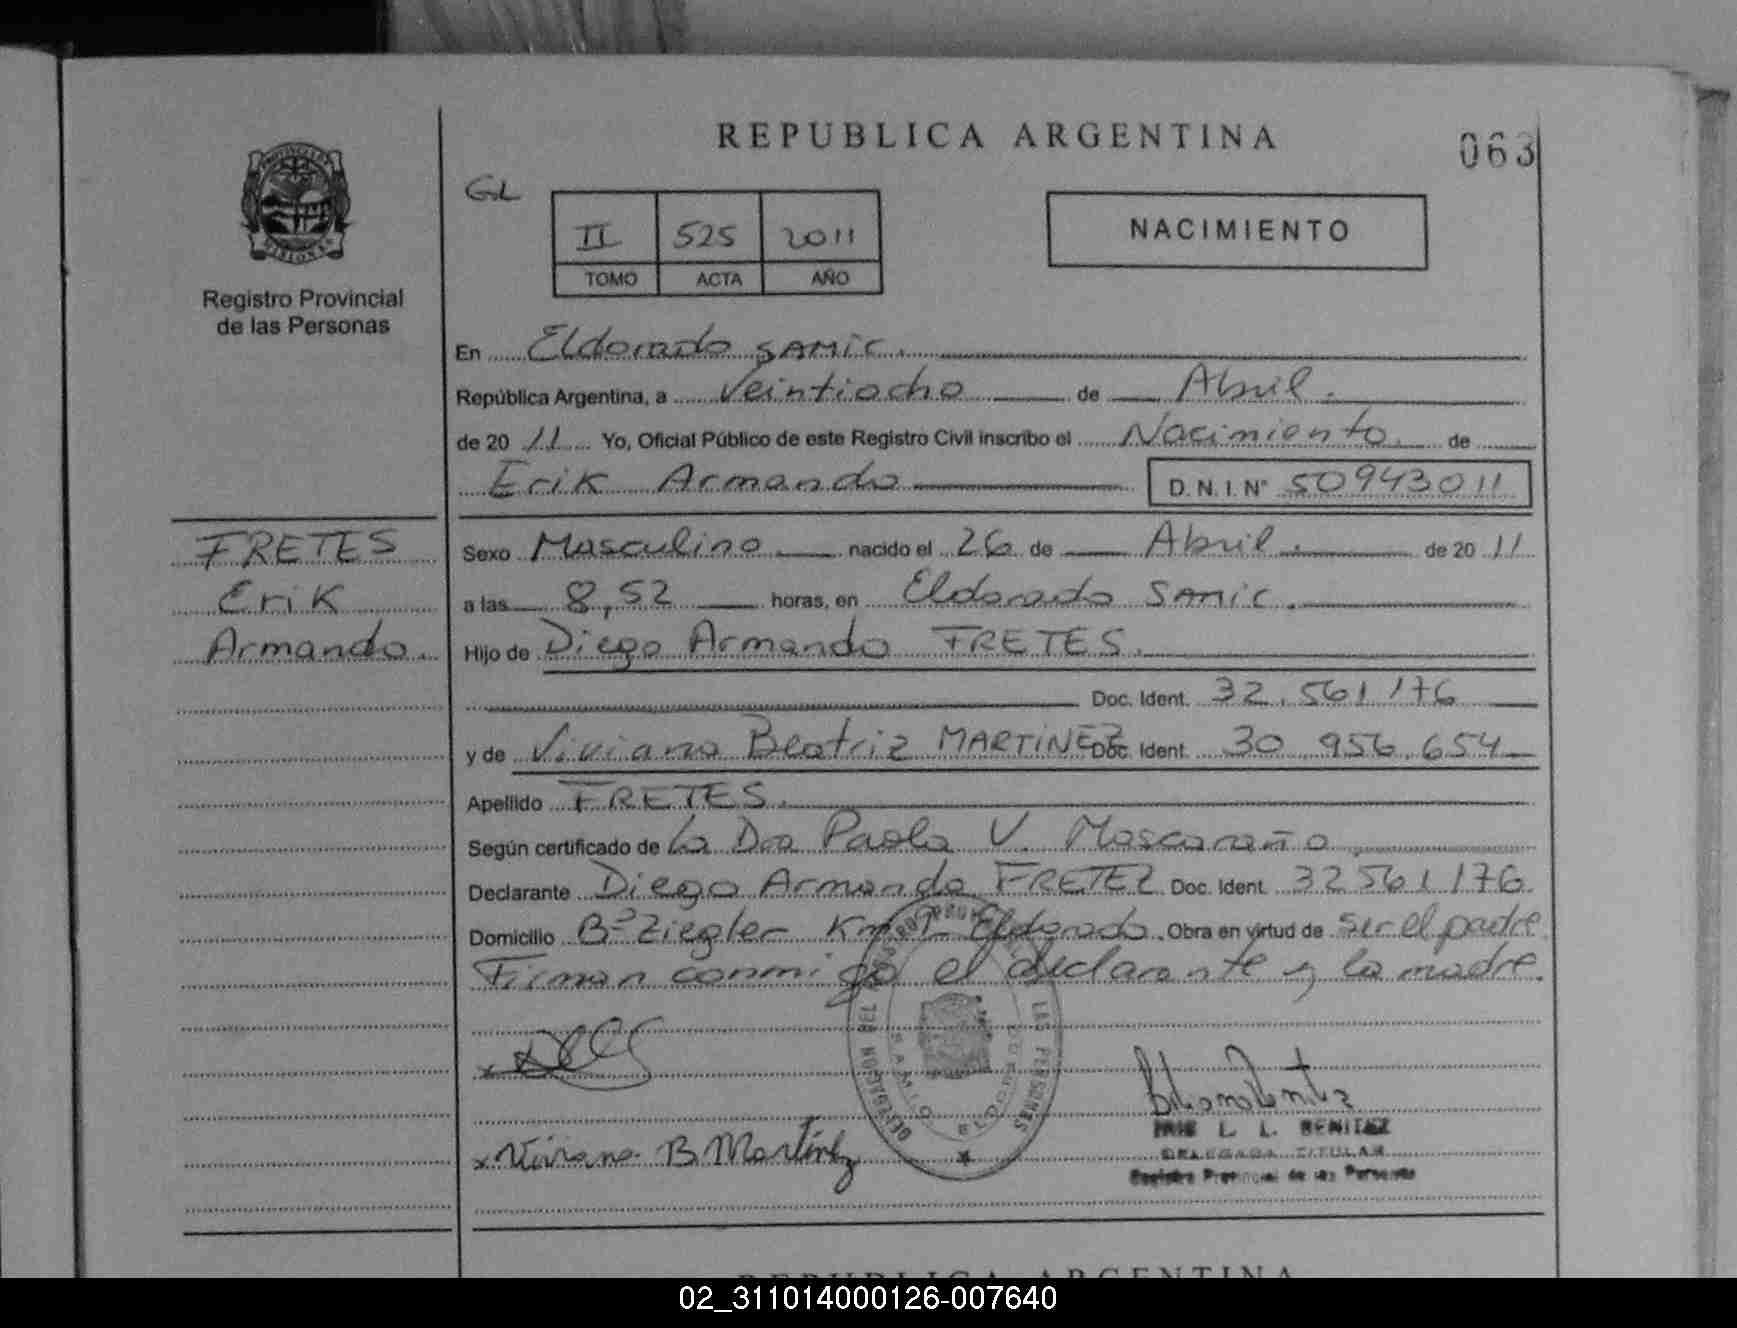 REPUBLICA ARGENTINA
063
PROVINCIA DE MISIONES
Registro Provincial
de las Personas
GL
II 525 2011
TOMO ACTA AÑO
NACIMIENTO
En Eldorado SAMIC.
República Argentina, a Veintiocho de Abril.
de 2011 Yo, Oficial Público de este Registro Civil inscribo el Nacimiento de
Erik Armando D.N.I.Nº 50943011
FRETES
Erik
Armando.
Sexo Masculino nacido el 26 de Abril. de 2011
a las 8,52 horas, en Eldorado SAMIC.
Hijo de Diego Armando FRETES.
Doc. Ident. 32.561.176
y de Viviana Beatriz MARTINEZ Doc. Ident. 30 956.654
Apellido FRETES.
Según certificado de La Dra Paola V. Mascaraño
Declarante Diego Armando FRETEZ Doc. Ident. 32561176
Domicilio Bº Ziegler Km 1 Eldorado. Obra en virtud de ser el padre
Firman conmigo el declarante y la madre.
x Viviana B Martínez
DELEGACION DEL REGISTRO PROV. DE LAS PERSONAS
SAMIC
IRIS L. L. BENITEZ
DELEGADA TITULAR
Registro Provincial de las Personas
REPUBLICA ARGENTINA
02_311014000126-007640